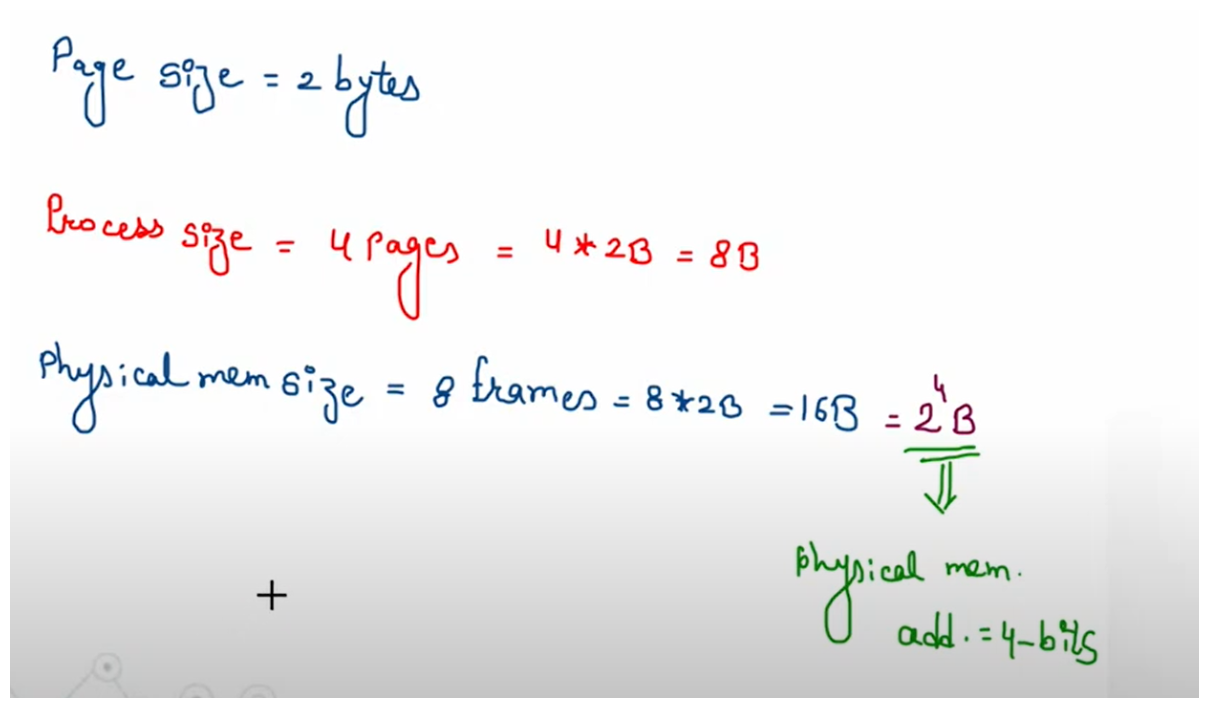 Page size = 2 bytes
Process size = 4 pages = 4 * 2B = 8B
Physical mem size = 8 frames = 8*2B = 16B = 2⁴B
physical mem.
add. = 4-bits